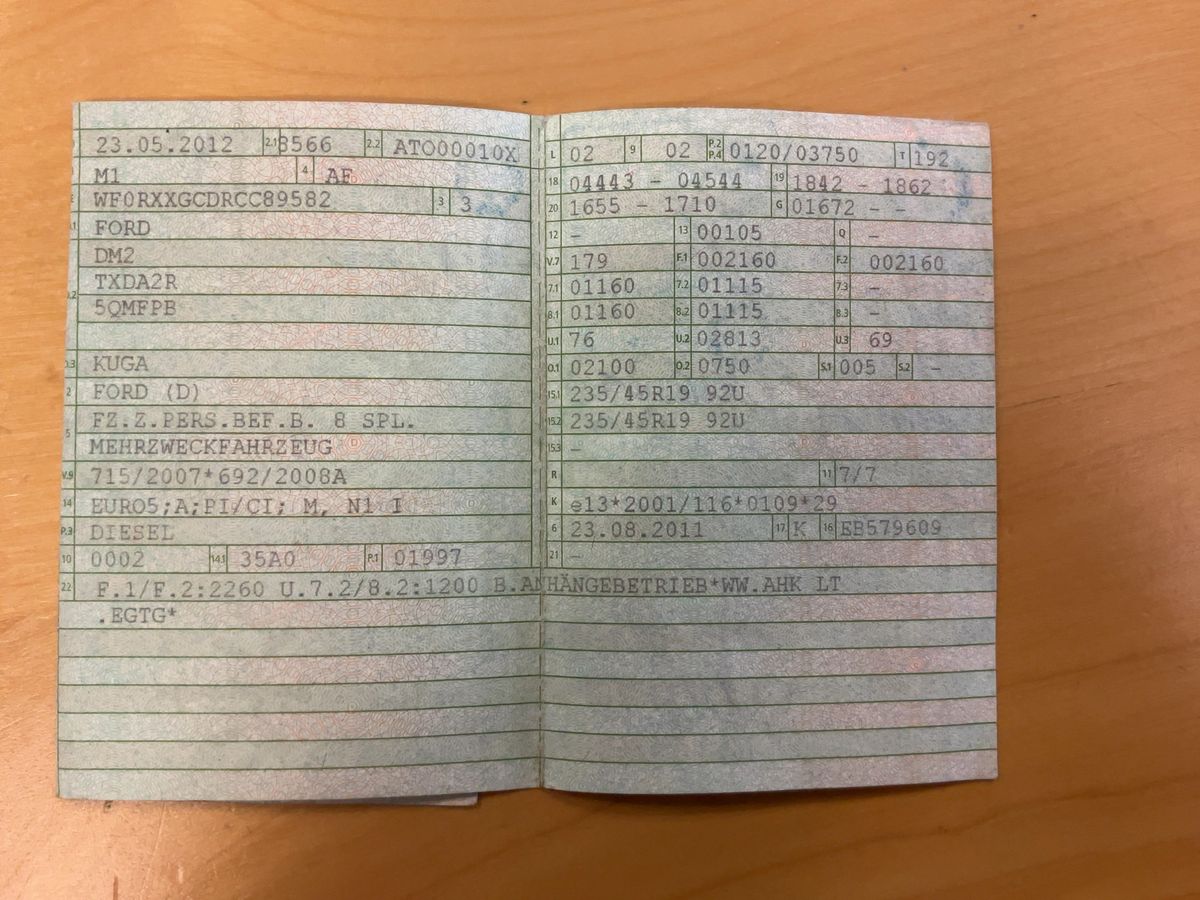 23.05.2012 2.1 8566 2.2 ATO00010X
M1 4 AF
WF0RXXGCDRCC89582 3 3
FORD
DM2
TXDA2R
5QMFPB
KUGA
2 FORD (D)
5 FZ.Z.PERS.BEF.B. 8 SPL.
MEHRZWECKFAHRZEUG
V.9 715/2007*692/2008A
14 EURO5;A;PI/CI; M, N1 I
P.3 DIESEL
10 0002 14.1 35A0 P.1 01997
L 02 9 02 P.2 P.4 0120/03750 T 192
18 04443 - 04544 19 1842 - 1862
20 1655 - 1710 G 01672 - -
12 - 13 00105 Q -
V.7 179 F.1 002160 F.2 002160
7.1 01160 7.2 01115 7.3 -
8.1 01160 8.2 01115 8.3 -
U.1 76 U.2 02813 U.3 69
O.1 02100 O.2 0750 S.1 005 S.2 -
15.1 235/45R19 92U
15.2 235/45R19 92U
15.3 -
R 11 7/7
K e13*2001/116*0109*29
6 23.08.2011 17 K 16 EB579609
21 -
22 F.1/F.2:2260 U.7.2/8.2:1200 B.ANHÄNGEBETRIEB*WW.AHK LT
.EGTG*